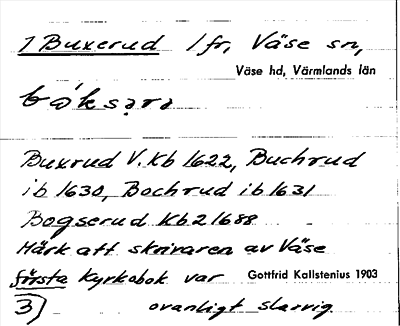 1 Buxerud 1 fr, Väse sn,
Väse hd, Värmlands län
Buxrud V. Kb 1622, Buchrud
ib 1630, Bochrud ib 1631
Bogserud Kb 2 1688
Märk att skrivaren av Väse
första Kyrkobok var Gottfrid Kallstenius 1903
3) ovanligt slarvig